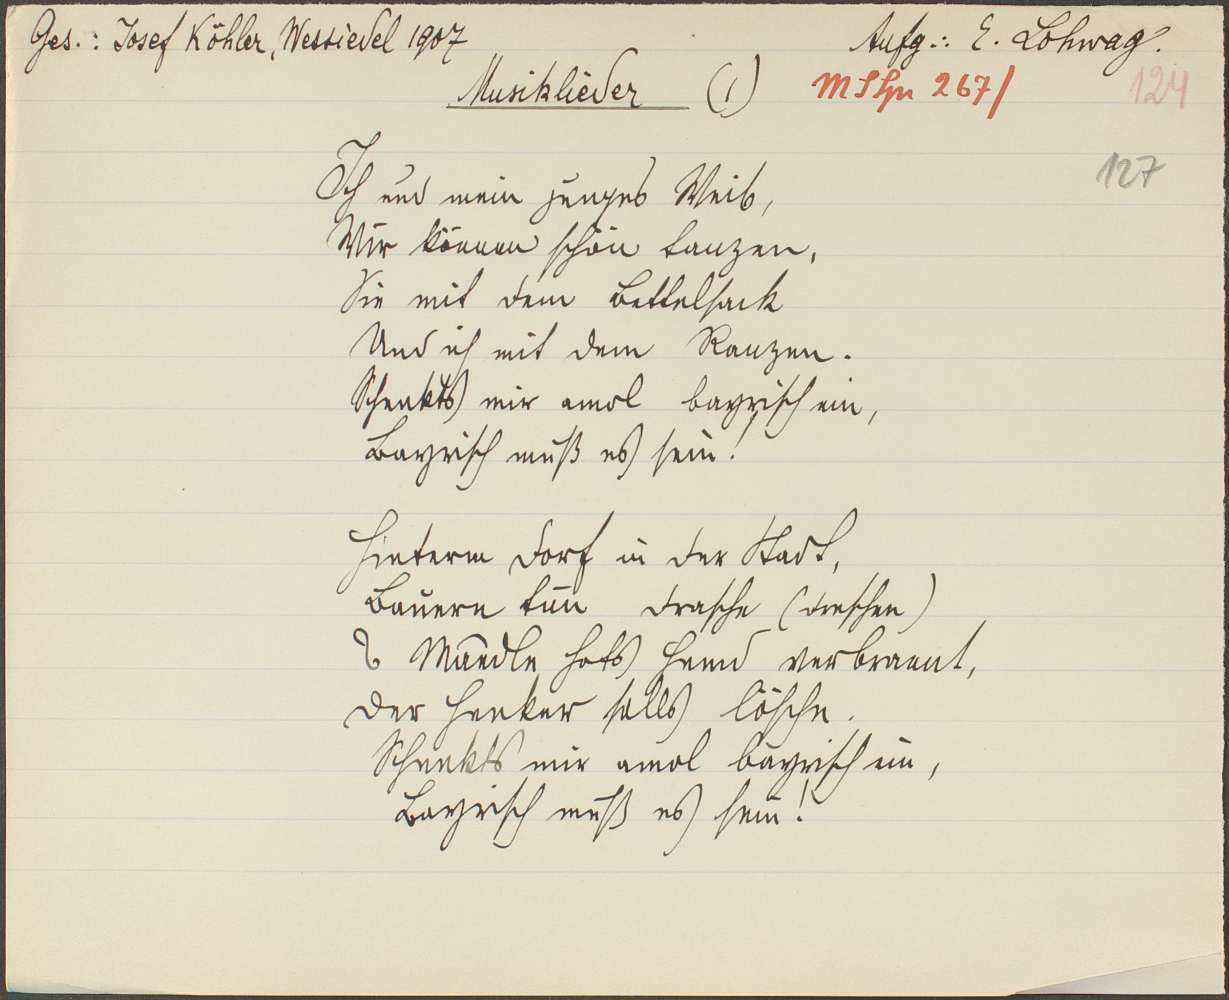 Ges.: Josef Köhler, Wessiedel 1907
Aufg.: E. Lohwag.
Musiklieder (1)
267/
124
127
Ich und mein junges Weib,
Wir können schön tanzen,
Sie mit dem Bettelsack
Und ich mit dem Ranzen.
Schenkts mir amol bayrisch ein,
Bayrisch muß es sein!
Hinterm Dorf in der Stadt,
Bauern tun drasche (dreschen)
Maedle hots Hemd verbrannt,
Der Henker solls lösche.
Schenkts mir amol bayrisch ein,
Bayrisch muß es sein!